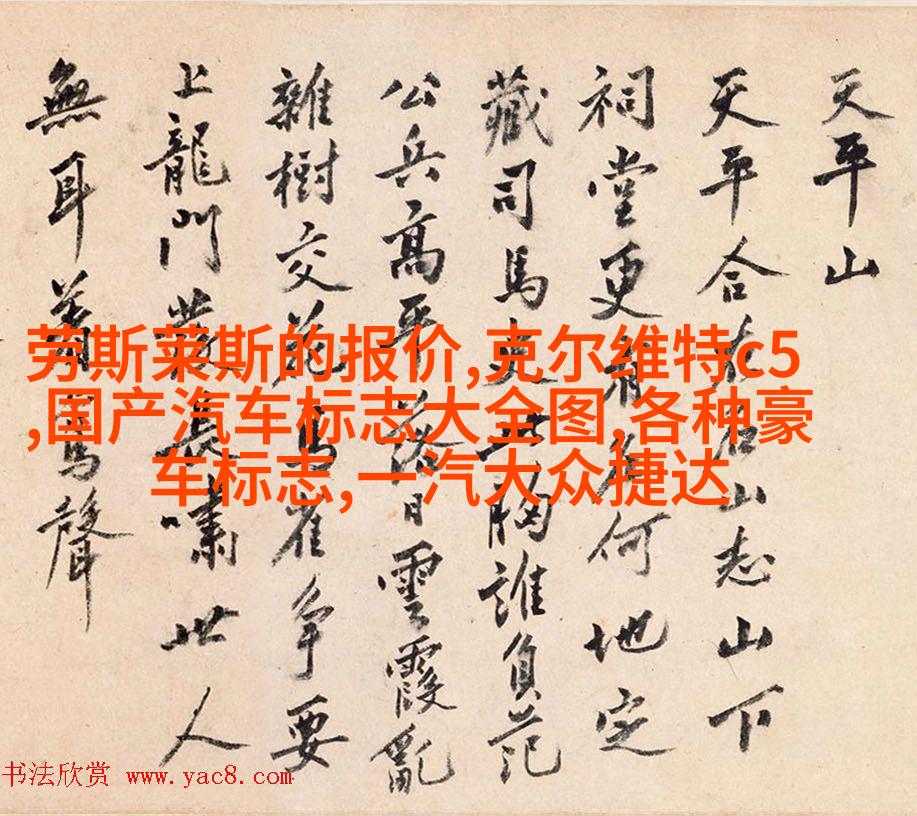 天平山
天平合名山志山下
祠堂更何地定
藏司馬史胸誰負范
公兵高平落日雲霞亂
雜樹交花鳥雀爭要
上龍門發長嘯世人
無耳聲
劳斯莱斯的报价,克尔维特c5
,国产汽车标志大全图,各种豪
车标志,一汽大众捷达
书法欣赏 www.yac8.com